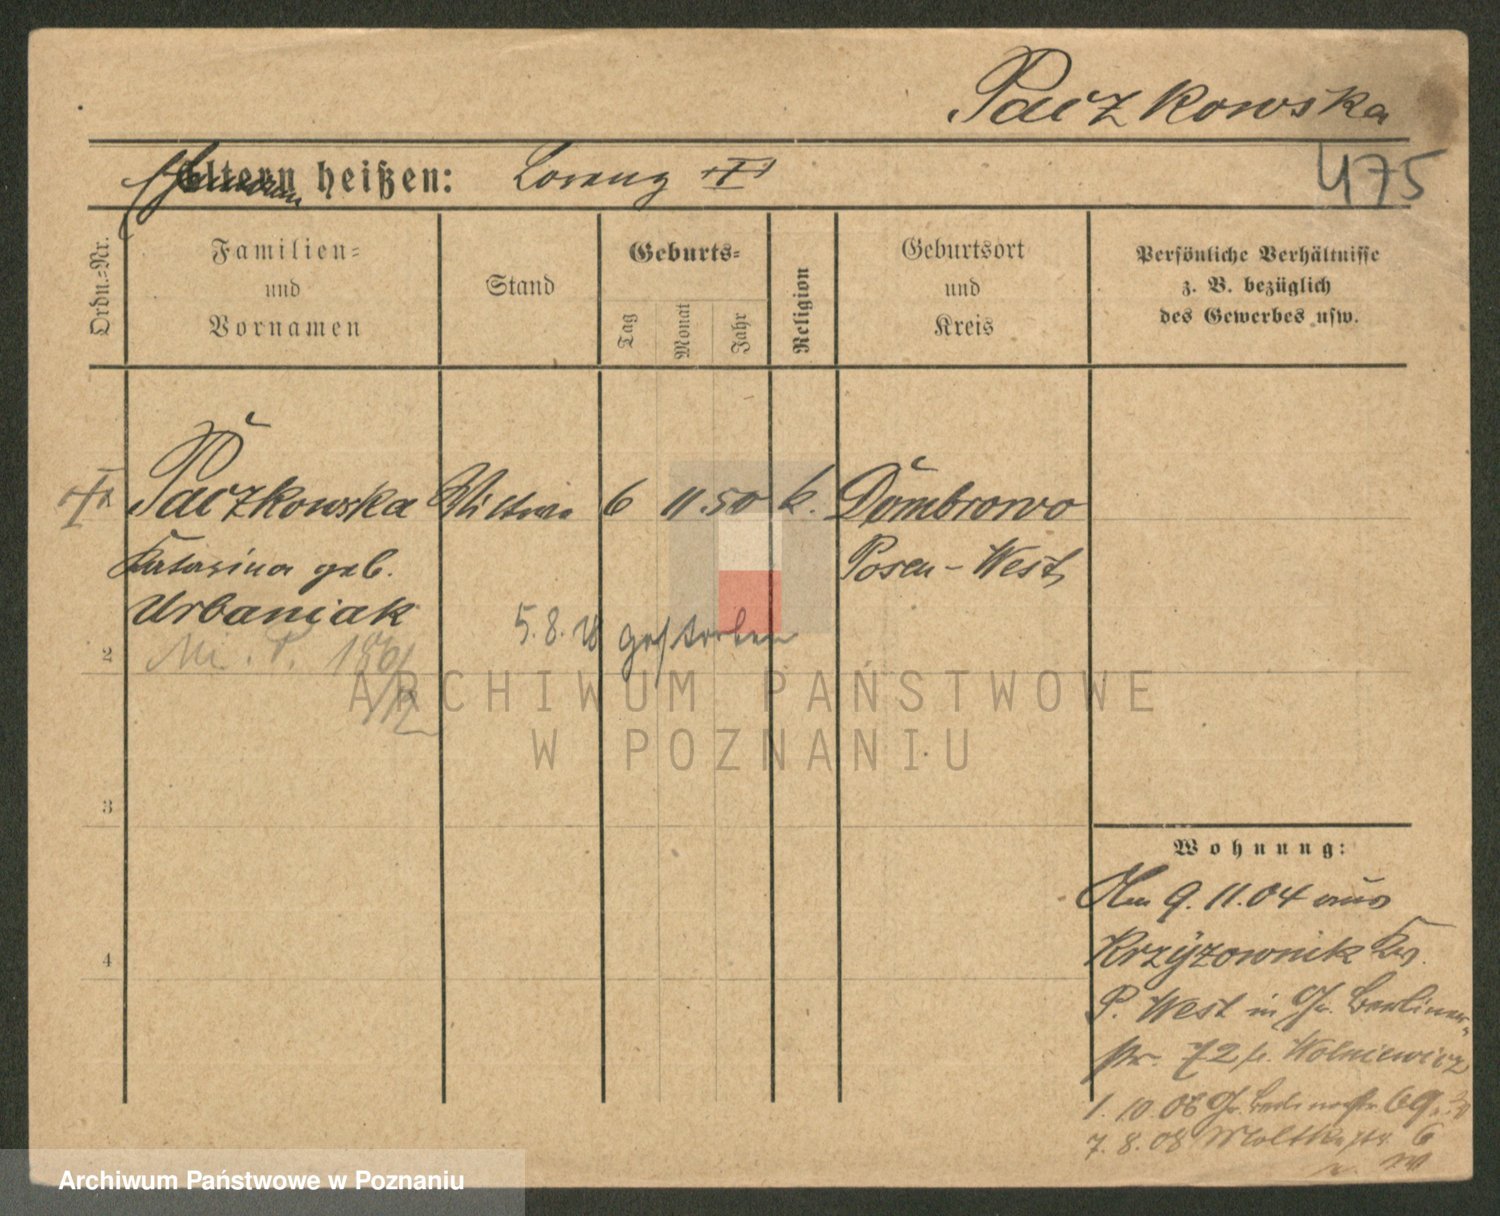 Paczkowska
Eltern heißen: Lorenz
475
Ordn.-Nr.
Familien-
und
Vornamen
Stand
Geburts-
Tag
Monat
Jahr
Religion
Geburtsort
und
Kreis
Persönliche Verhältnisse
z. B. bezüglich
des Gewerbes usw.
Paczkowska Wittwe 6 11 50 k. Dombrowo
Katarina geb. Posen-West
Urbaniak
5.8.18 gestorben
2
ARCHIWUM PAŃSTWOWE
W POZNANIU
3
Wohnung:
Am 9.11.04 aus
Krzyzownik Krs.
4
P. West in Gr. Berliner-
str. 72 b. Wolniewicz
1.10.06 Gr. Berlinerstr. 69
7.8.08 Moltkestr. 6
Archiwum Państwowe w Poznaniu